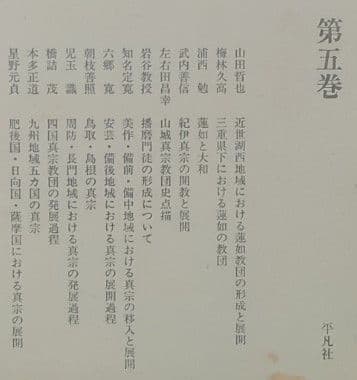 第五巻
山田哲也 近世湖西地域における蓮如教団の形成と展開
梅林久高 三重県下における蓮如の教団
浦西勉 蓮如と大和
武内善信 紀伊真宗の開教と展開
左右田昌幸 山城真宗教団史点描
岩谷教授 播磨門徒の形成について
知名定寛 美作・備前・備中地域における真宗の移入と展開
六郷寛 安芸・備後地域における真宗の展開過程
朝枝善照 鳥取・島根の真宗
児玉識 周防・長門地域における真宗の発展過程
橋詰茂 四国真宗教団の発展過程
本多正道 九州地域五カ国の真宗
星野元貞 肥後国・日向国・薩摩国における真宗の展開
平凡社